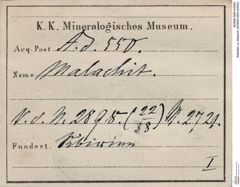 K. K. Mineralogisches Museum.
Acq.-Post. A. d. 550.
Name Malachit.
V. d. N. 2895. (22/38) N. 2721.
Fundort. Sibirien
I